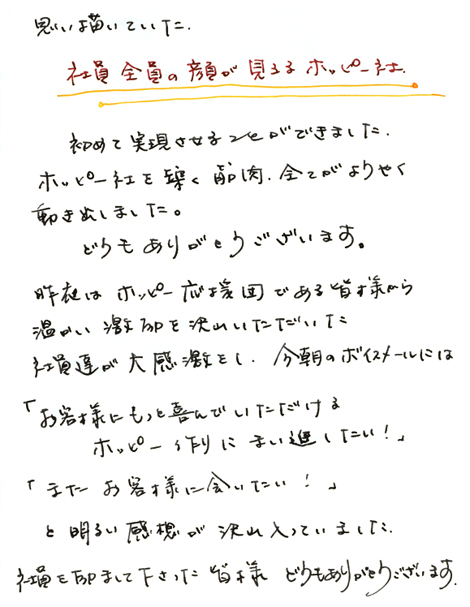 思い描いていた
社員全員の顔が見えるホッピー社.
初めて実現させることができました.
ホッピー社を築く筋肉.全てがようやく
動き出しました。
どうもありがとうございます。
昨夜はホッピー応援団である皆様から
温かい激励を沢山いただいた
社員達が大感激をし.今朝のボイスメールには
「お客様にもっと喜んでいただける
ホッピー作りにまい進したい！」
「またお客様に会いたい！」
と明るい感想が沢山入っていました.
社員を励まして下さった皆様 どうもありがとうございます.